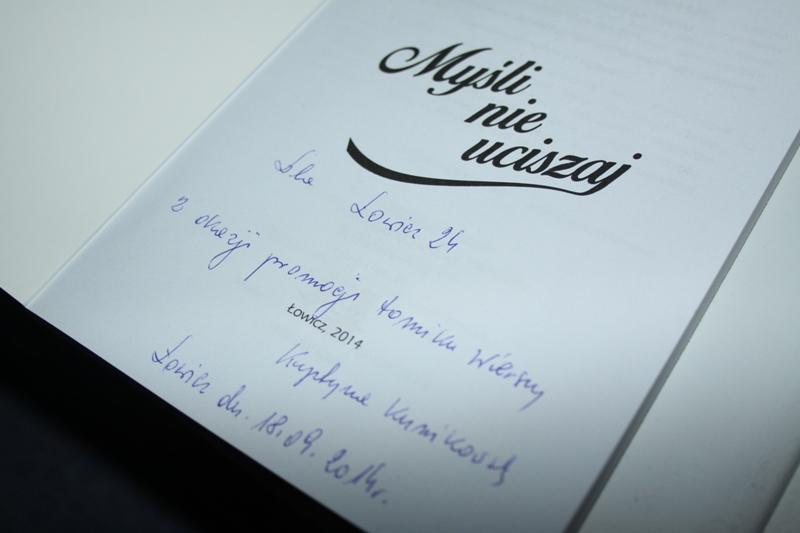 Myśli
nie
uciszaj
Dla Łowicz 24
z okazji promocji tomiku wierszy
ŁOWICZ, 2014
Krystyna Kunikowska
Łowicz dn. 18.09.2014r.